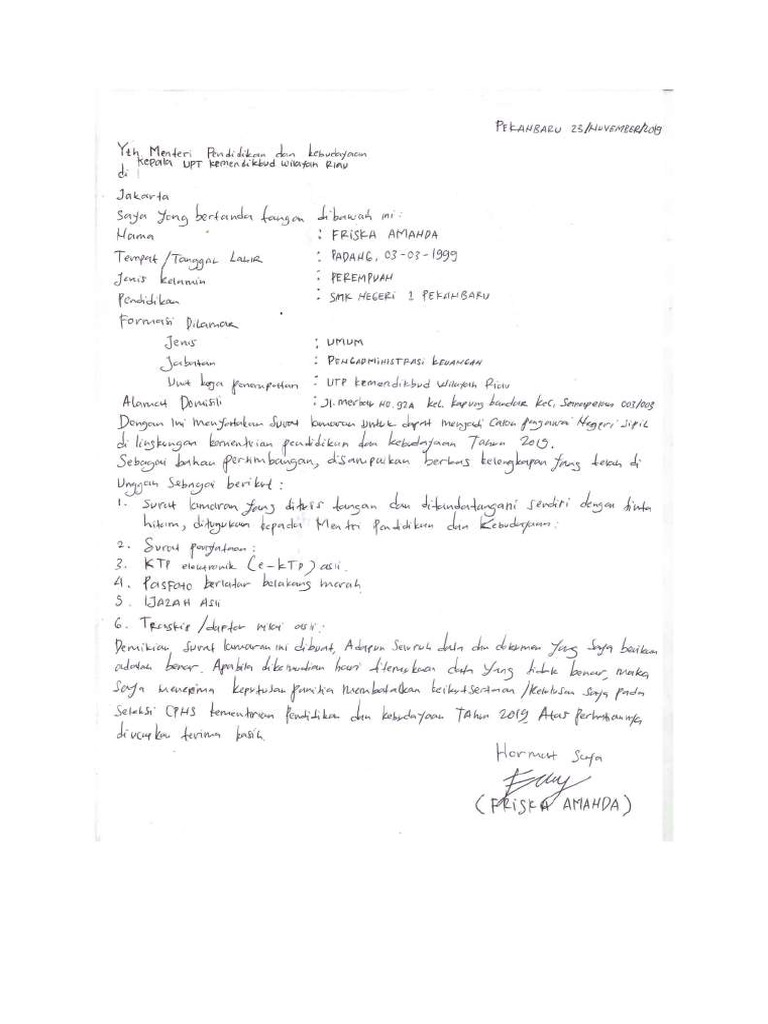 PEKANBARU 23/NOVEMBER/2019
Yth Menteri Pendidikan dan kebudayaan
kepala UPT kemendikbud wilayah Riau
di
Jakarta
Saya yang bertanda tangan dibawah ini :
Nama : FRISKA AMANDA
Tempat /Tanggal LAHIR : PADANG, 03-03-1999
Jenis kelamin : PEREMPUAN
Pendidikan : SMK NEGERI 1 PEKANBARU
Formasi Dilamar
Jenis : UMUM
Jabatan : PENGADMINISTRASI KEUANGAN
Unit kerja penempatan : UTP kemendikbud wilayah Riau
Alamat Domisili : Jl. merbau NO.92A kel. kapung bandar kec, 003/003
Dengan ini menyertakan Surat lamaran untuk dapat menjadi Calon pengawai Negeri Sipil
di lingkungan kementrian pendidikan dan kebudayaan Tahun 2019.
Sebagai bahan pertimbangan, disampaikan berkas kelengkapan yang telah di
Unggah Sebagai berikut :
1. Surat lamaran yang ditulis tangan dan ditandatangani sendiri dengan tinta
hitam, ditujukan kepada Mentri Pendidikan dan Kebudayaan:
2. Surat pernyataan :
3. KTP elektronik (e-KTP) asli.
4. PASFOTO berlatar belakang merah
5. IJAZAH ASLI
6. Transkip /daptar nilai asli :
Demikian Surat lamaran ini dibuat, Adapun Seluruh data dan dokumen yang Saya berikan
adalah benar. Apabila dikemudian hari ditemukaan data yang tidak benar, maka
Saya menerima keputusan panitia membatalkan keikutsertaan /kelulusan Saya pada
Seleksi CPNS kementrian pendidikan dan kebudayaan TAHUN 2019, Atas perhatiannya
diucapkan terima kasih.
Hormat Saya
(FRISKA AMANDA)